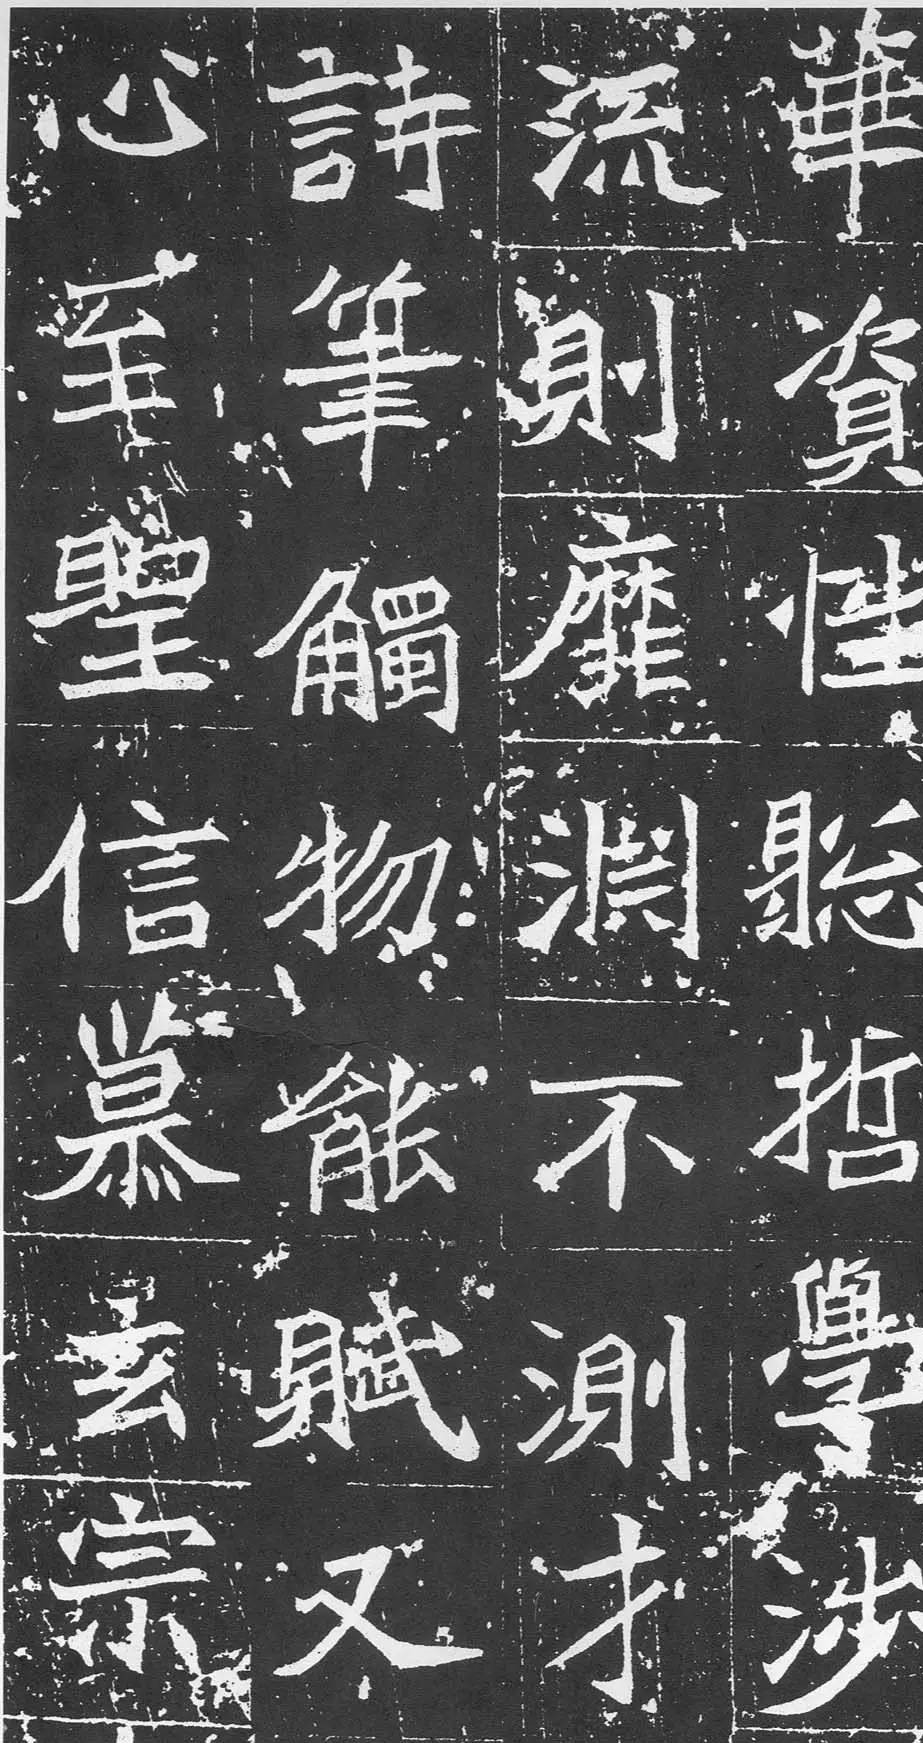 華資性聡哲學涉
流則靡淵不測才
詩筆觸物能賦又
心至聖信慕玄宗